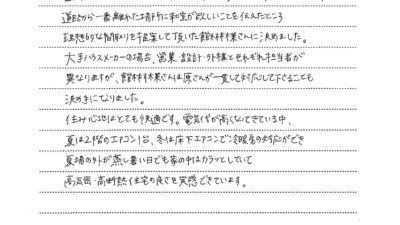 道路から一番離れた場所に和室が欲しいことを伝えたところ
理想的な間取りを提案して頂いた館林林業さんに決めました。
大手ハウスメーカーの場合、営業・設計・外構とそれぞれ担当者が
異なりますが、館林林業さんは原さんが一貫して対応して下さることも
決め手になりました。
住み心地はとても快適です。電気代が高くなってきている中、
夏は2階のエアコン1台、冬は床下エアコンで冷暖房の対応ができ
夏場の外が蒸し暑い日でも家の中はカラッとしていて
高気密・高断熱住宅の良さを実感できています。